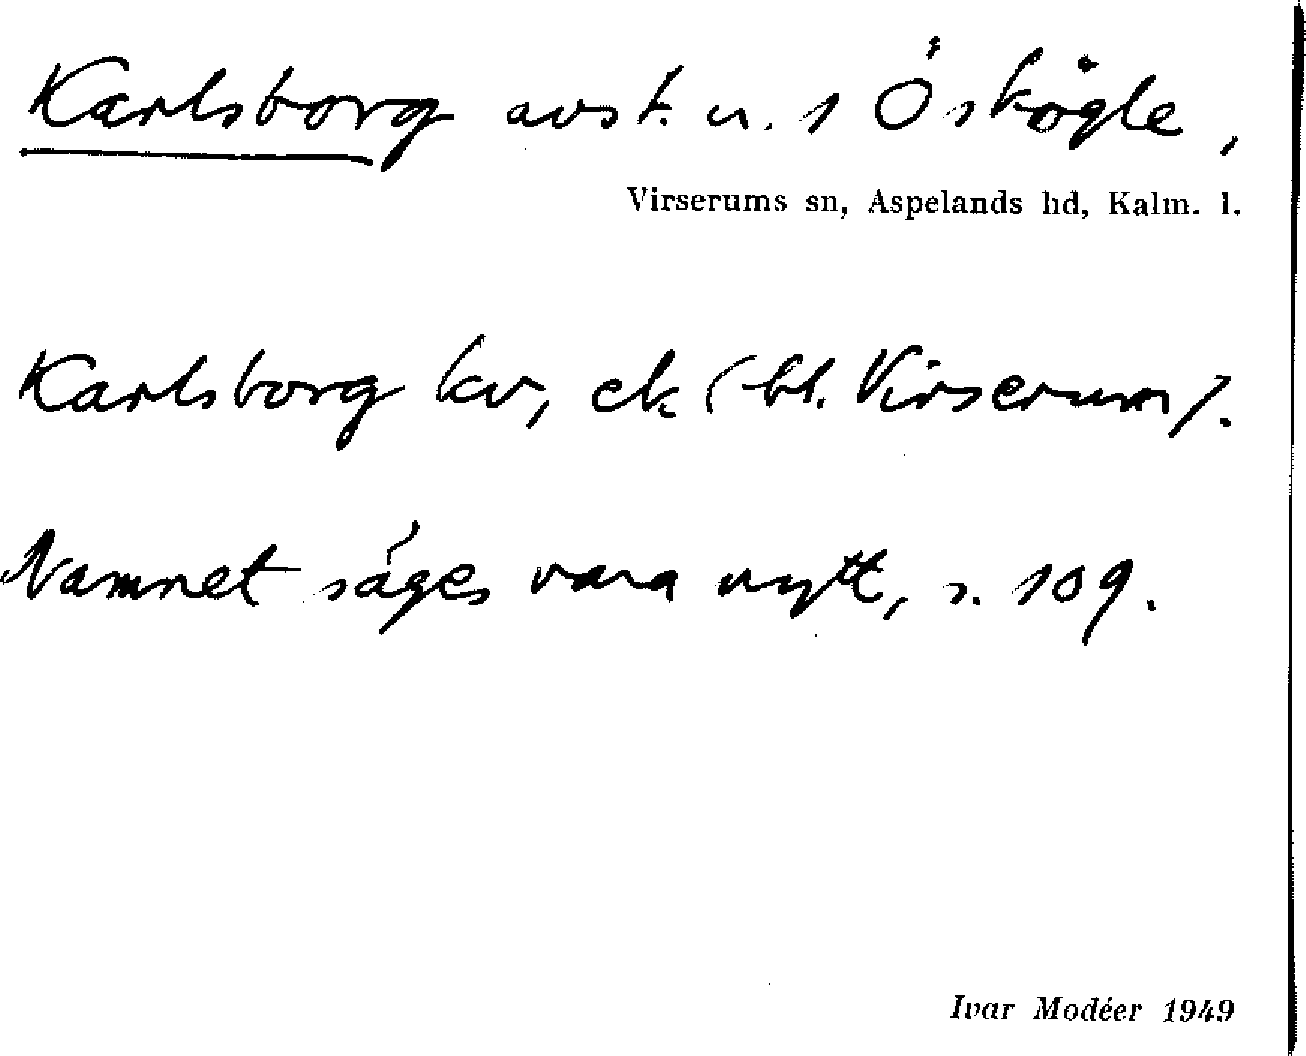 Karlsborg avst. u. 1 Ö Skögle,
Virserums sn, Aspelands hd, Kalm. l.
Karlsborg kv, ek (bl. Virserum).
Namnet säges vara nytt, s. 109.
Ivar Modéer 1949